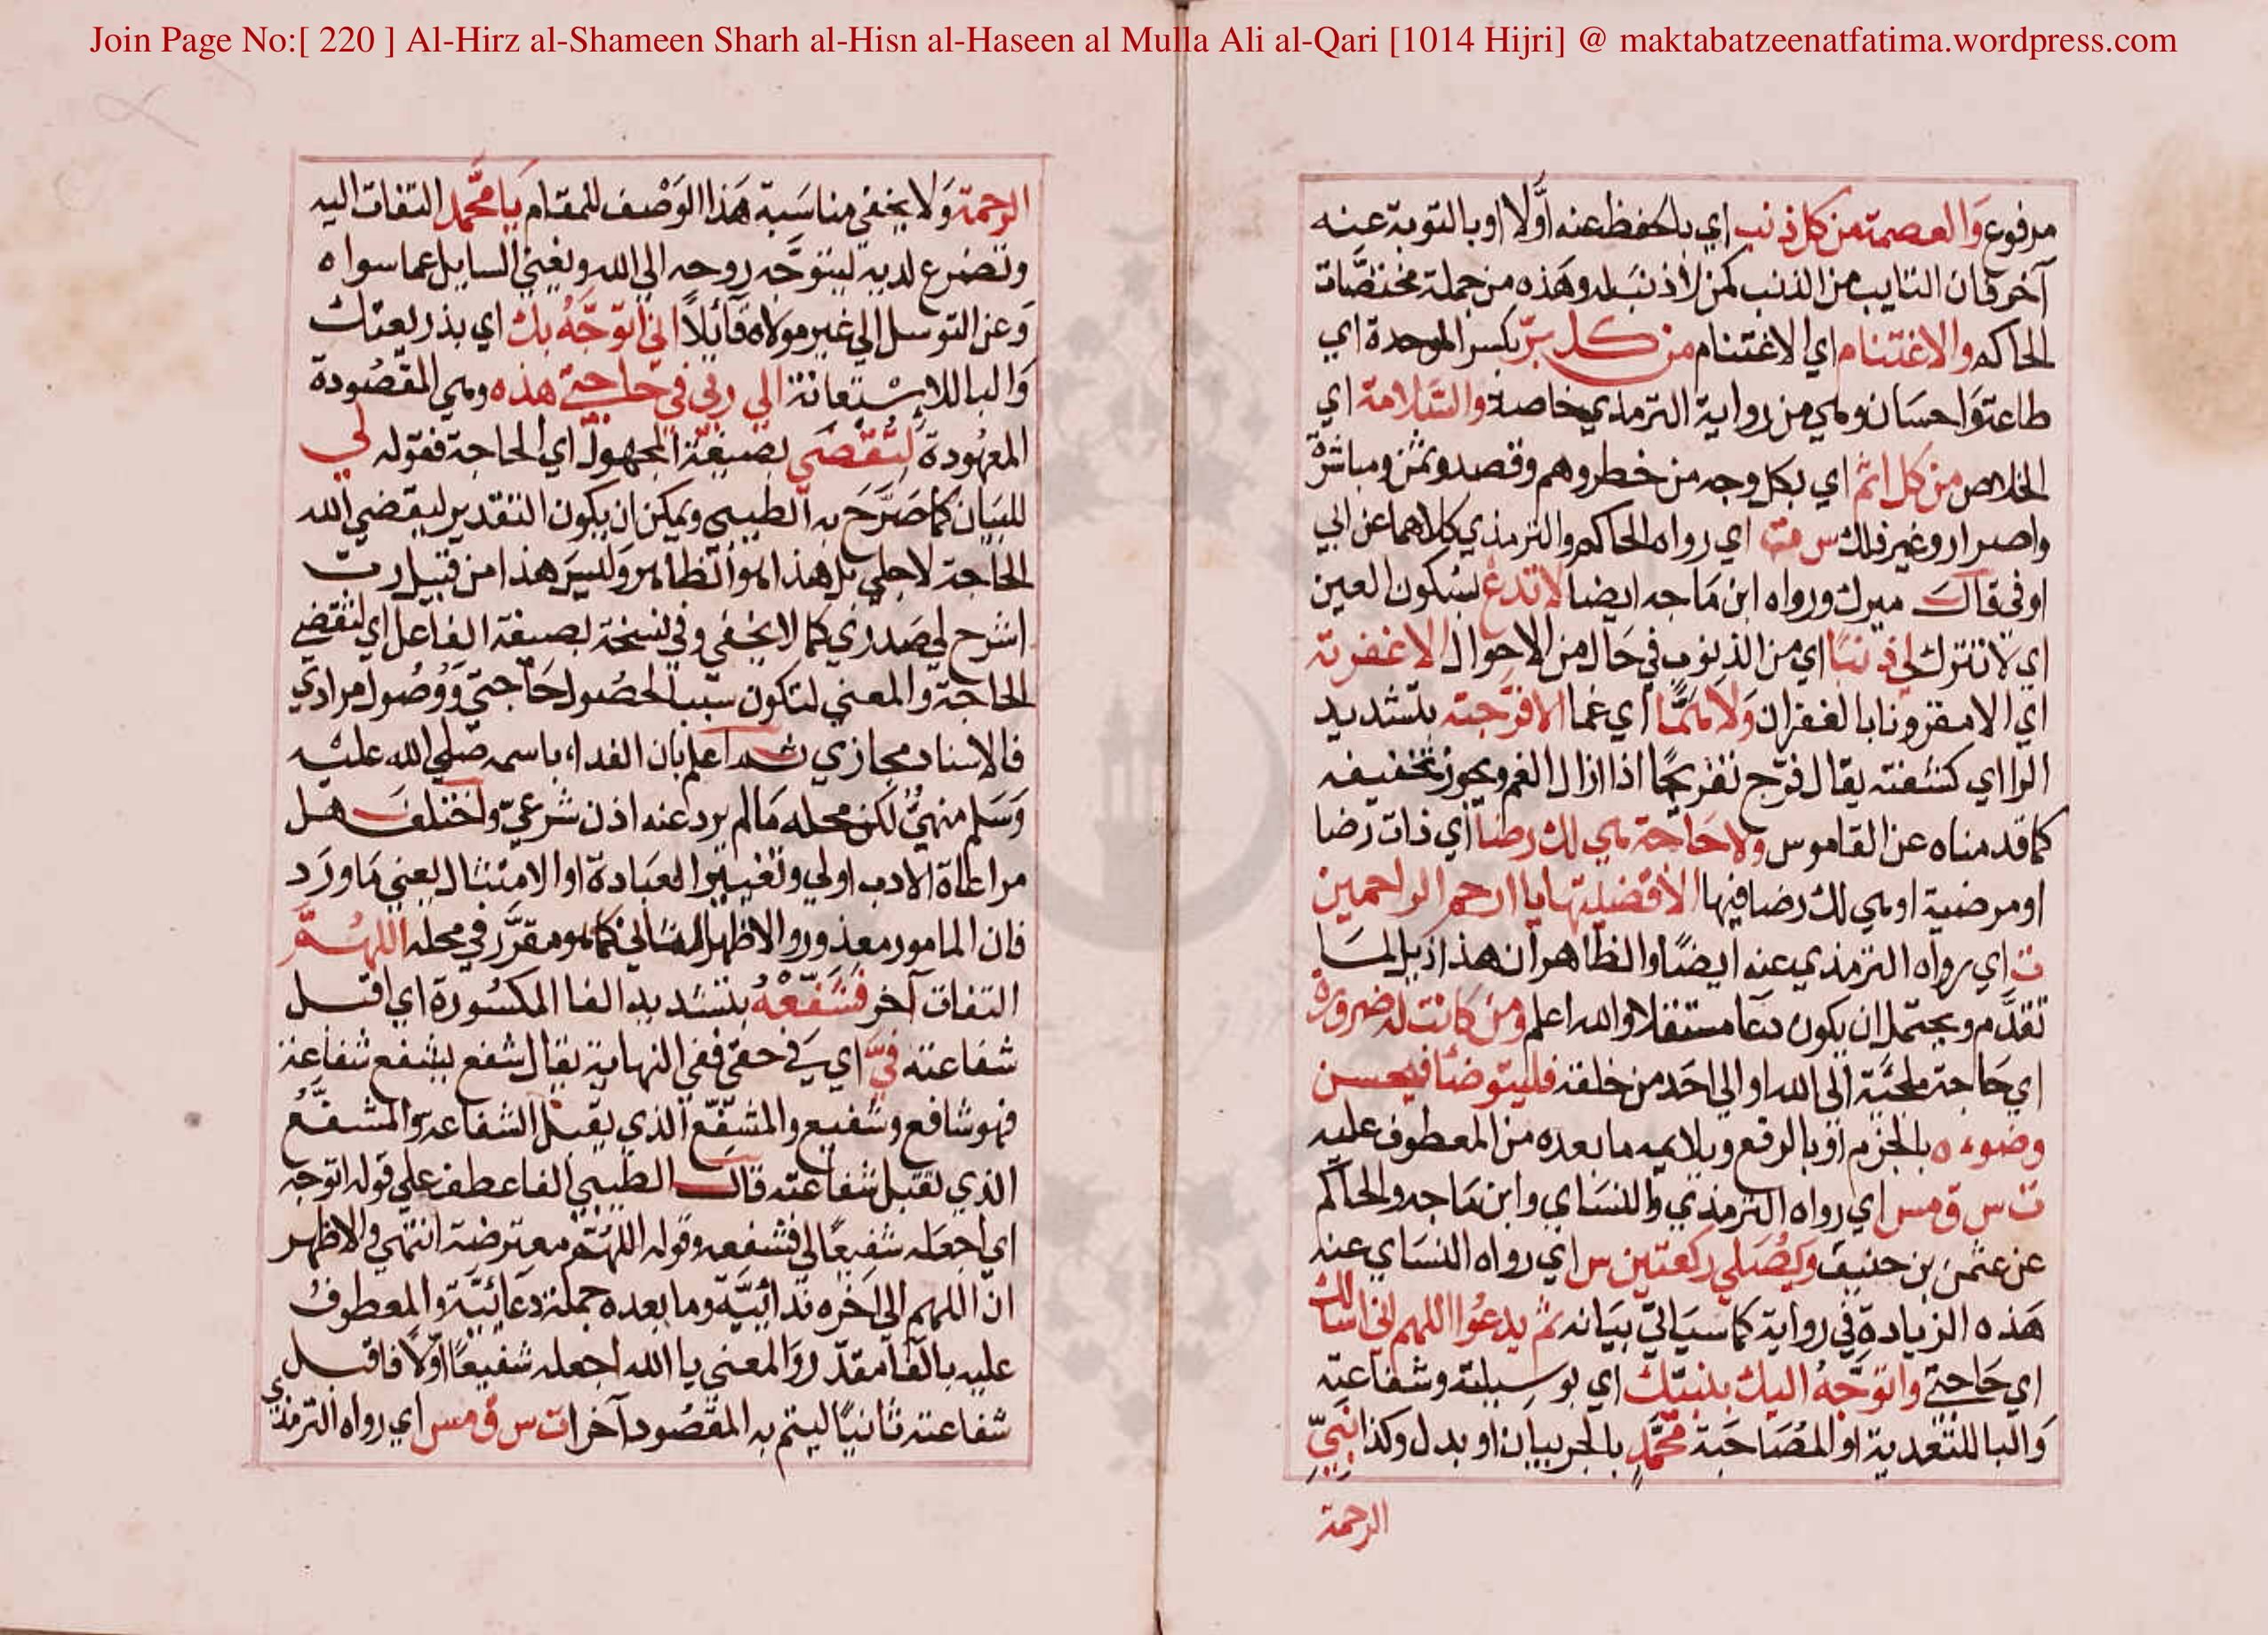 Join Page No:[ 220 ] Al-Hirz al-Shameen Sharh al-Hisn al-Haseen al Mulla Ali al-Qari [1014 Hijri] @ maktabatzeenatfatima.wordpress.com
مرفوع والعصمة من كل ذنب اي بالحفظ عنه أولا او بالتوبة عنه
آخر فان التايب من الذنب كمن لا ذنب له وهذه من جملة مختصات
الحاكم والاغتنام اي الاغتنام من كل بر بكسر الموحدة اي
طاعة واحسان وهي من رواية الترمذي خاصة والسلامة اي
الخلاص من كل اثم اي بكل وجه من خطر وهم وقصد وثمن ومباشرة
واصرار وغير ذلك س مت اي رواه الحاكم والترمذي كلاهما عن ابي
اوفى قال ميرك ورواه ابن ماجه ايضا لا تدع بسكون العين
اي لا تترك لي ذنبا اي من الذنوب في حال من الاحوال الا غفرته
اي الا مقرونا بالغفران ولا همّا أي غما الا فرّجته بتشديد
الرا اي كشفته يقال فرّج تفريجًا اذا ازال الغم ويجوز تخفيفه
كما قدمناه عن القاموس ولا حاجة هي لك رضا أي ذات رضا
او مرضية او هي لك رضا فيها الا قضيتها يا ارحم الراحمين
ت اي رواه الترمذي عنه ايضًا والظاهر ان هذا ذيل لما
تقدَّم ويحتمل ان يكون دعا مستقلا والله اعلم ومن كانت له ضرورة
اي حاجة ملجئة الى الله او الي احد من خلقه فليتوضأ فيحسن
وضوءه بالجزم او بالرفع ويلايمه ما بعده من المعطوف عليه
ت س ق مس اي رواه الترمذي والنساي وابن ماجه والحاكم
عن عثمن بن حنيف ويُصَلي ركعتين س اي رواه النساي عنه
هذه الزيادة في رواية كما سياتي بيانه ثم يدعوا اللهم اني اسالك
اي حاجتي واتوجَّهُ اليك بنبيّك اي بوسيلته وشفاعته
والبا للتعدية او المصاحبة محمّدٍ بالجر بيان او بدل وكذا نبيّ
الرحمة
الرحمة ولا يخفي مناسبة هذا الوصف للمقام يا محمّد التفات اليه
وتضرع لديه ليتوجّه روحه الي الله ويغني السايل عما سواه
وعن التوسل الي غير مولاه قآئلاً اني اتوجَّهُ بك اي بذريعتك
والبا للاستعانة الي ربي في حاجتي هذه وهي المقصودة
المعهودة لتقضي بصيغة المجهول اي الحاجة فقوله لي
للبيان كما صرّح به الطيبي ويمكن ان يكون التقدير ليقضي الله
الحاجة لاجلي بل هذا هو الظاهر وليس هذا من قبيل رب
اشرح لي صدري كما لا يخفي وفي نسخة بصيغة الفاعل اي لتقضي
الحاجة والمعني لتكون سببا لحصول حاجتي ووصول مرادي
فالاسناد مجازي ثم اعلم بان الندا باسمه صلي الله عليه
وسلم منهيّ لكن محله ما لم يرد عنه اذن شرعيّ واختلف هل
مراعاة الادب اولي وتغيير العبادة او الامتثال يعني ما ورد
فان المامور معذور والاظهر الثاني كما هو مقرّر في محله اللهمّ
التفات آخر فَشَفِّعْهُ بتشديد الفا المكسورة اي اقبل
شفاعته فيّ اي في حقي ففي النهاية يقال شفع يشفع شفاعة
فهو شافع وشفيع والمشفّع الذي يقبل الشفاعة والمشفّع
الذي تقبل شفاعته قال الطيبي الفا عطف علي قوله اتوجه
اي اجعله شفيعًا لي فشفعه وقوله اللهم معترضة انتهي والاظهر
ان اللهم الي آخره ندائيّة وما بعده جملة دعائيّة والمعطوف
عليه بالفا مقدّر والمعني يا الله اجعله شفيعًا اوّلاً فاقبل
شفاعته ثانيًا ليتم به المقصود آخرا ت س ق مس اي رواه الترمذي